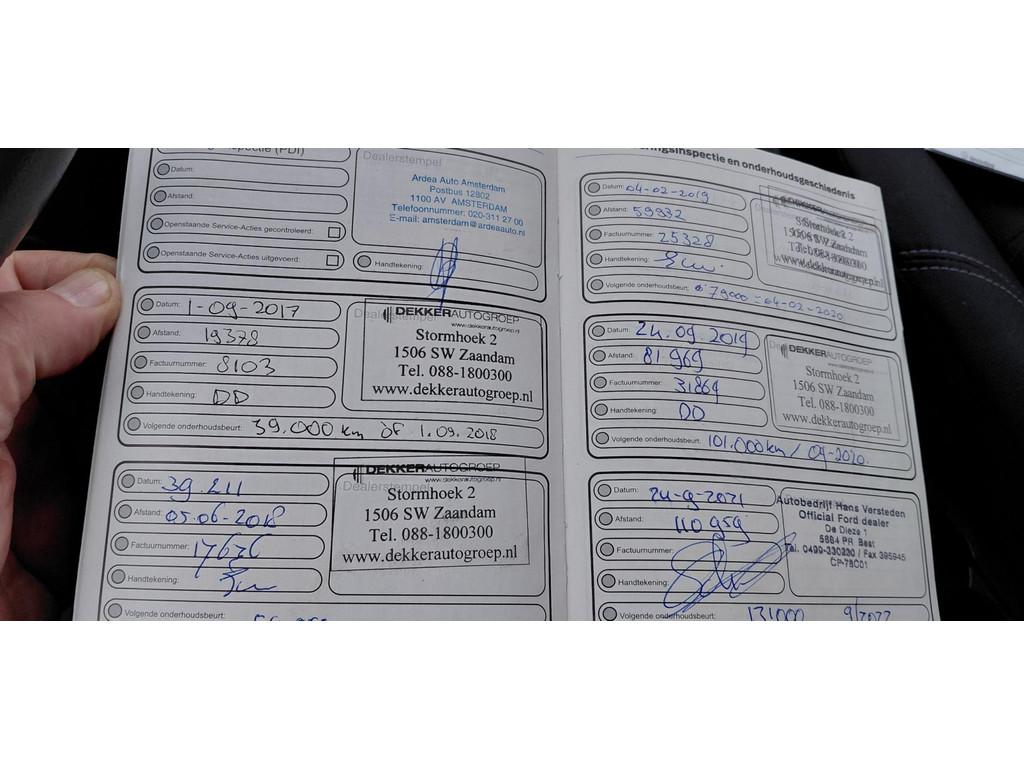 Inspectie (PDI)
Datum:
Afstand:
Openstaande Service-Acties gecontroleerd:
Openstaande Service-Acties uitgevoerd:
Dealerstempel
Ardea Auto Amsterdam
Postbus 12802
1100 AV AMSTERDAM
Telefoonnummer: 020-311 27 00
E-mail: amsterdam@ardeaauto.nl
Handtekening:
Datum: 1-09-2017
Afstand: 19378
Factuurnummer: 8103
Handtekening: DD
Volgende onderhoudsbeurt: 39.000 km óf 1.09.2018
DEKKERAUTOGROEP
www.dekkerautogroep.nl
Stormhoek 2
1506 SW Zaandam
Tel. 088-1800300
www.dekkerautogroep.nl
Datum: 39.211
Afstand: 05.06-2018
Factuurnummer: 17636
Handtekening:
Volgende onderhoudsbeurt:
DEKKERAUTOGROEP
www.dekkerautogroep.nl
Dealerstempel
Stormhoek 2
1506 SW Zaandam
Tel. 088-1800300
www.dekkerautogroep.nl
ringsinspectie en onderhoudsgeschiedenis
Datum: 04-02-2019
Afstand: 59932
Factuurnummer: 25328
Handtekening:
Volgende onderhoudsbeurt: 79000 - 04-02-2020
Stormhoek 2
1506 SW Zaandam
Tel. 088-1800300
www.dekkerautogroep.nl
Datum: 24.09.2019
Afstand: 81969
Factuurnummer: 31864
Handtekening: DD
Volgende onderhoudsbeurt: 101.000km / 09-2020.
DEKKERAUTOGROEP
Stormhoek 2
1506 SW Zaandam
Tel. 088-1800300
www.dekkerautogroep.nl
Datum: 24-9-2021
Afstand: 110959
Factuurnummer:
Handtekening:
Volgende onderhoudsbeurt: 131000 9/2022
Autobedrijf Hans Versteden
Official Ford dealer
De Dieze 1
5684 PR Best
Tel. 0499-330230 / Fax 395945
CP-78C01